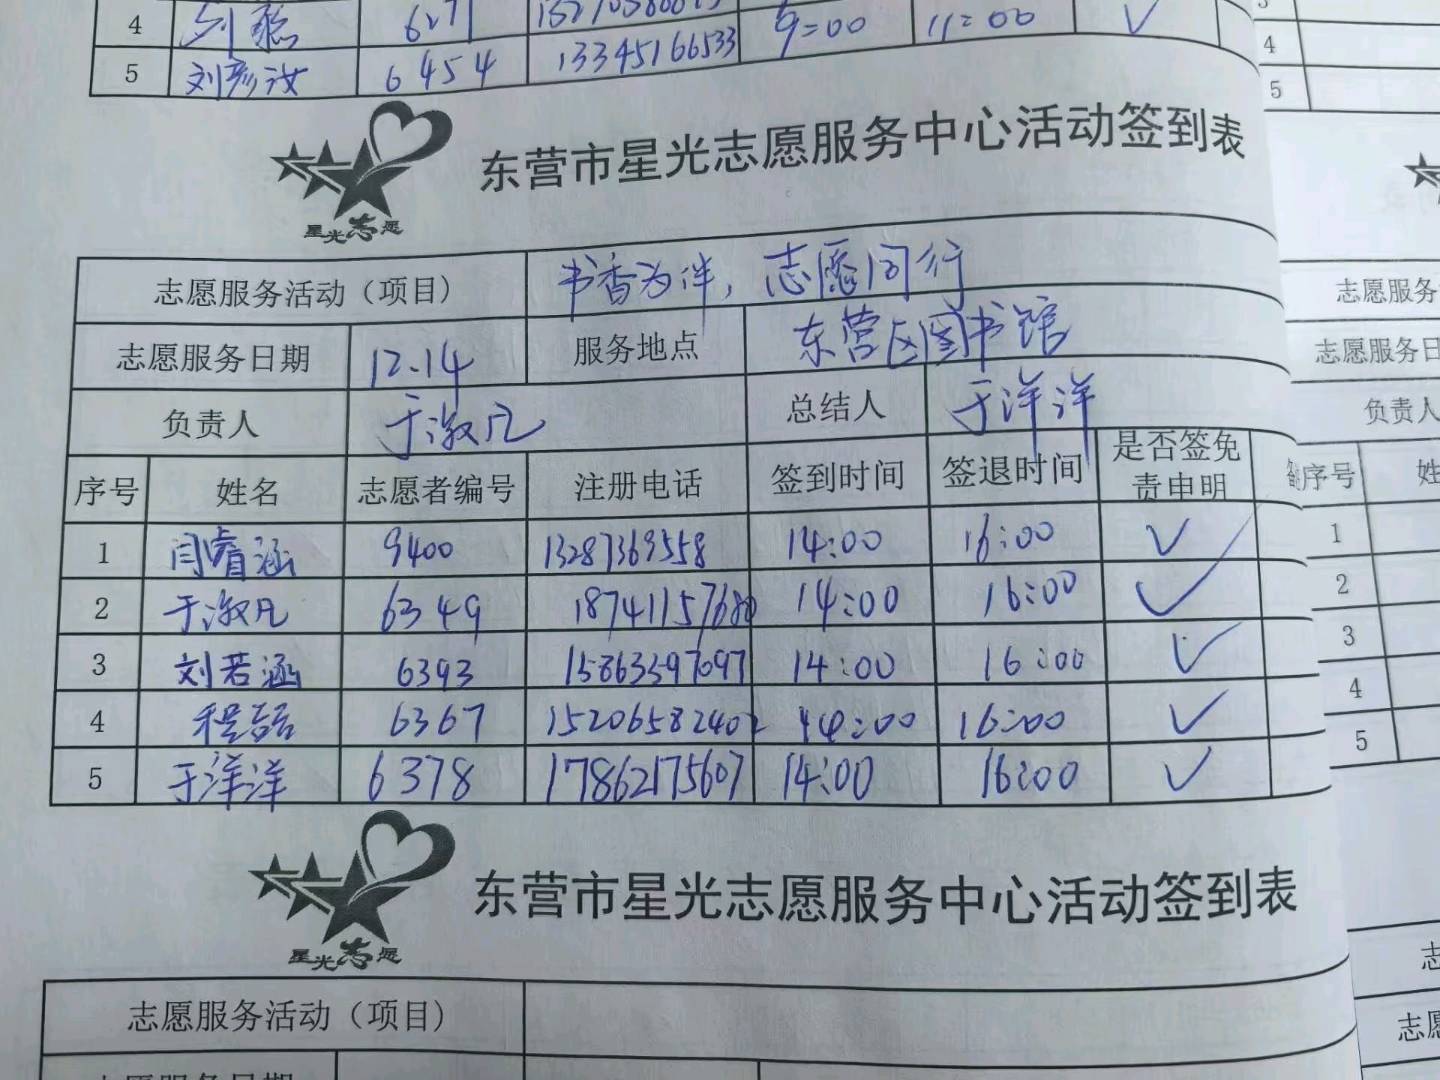 4 刘 6271 9:00 11:00 ✓
5 刘彦汝 6454 13345166533
东营市星光志愿服务中心活动签到表
星光志愿
志愿服务活动（项目） 书香为伴，志愿同行
志愿服务日期 12.14 服务地点 东营区图书馆
负责人 于淑凡 总结人 于洋洋
序号 姓名 志愿者编号 注册电话 签到时间 签退时间 是否签免责申明
1 闫睿涵 9400 13287369558 14:00 16:00 ✓
2 于淑凡 6349 18741157680 14:00 16:00 ✓
3 刘若涵 6393 15863397097 14:00 16:00 ✓
4 程 6367 15206582402 14:00 16:00 ✓
5 于洋洋 6378 17862175607 14:00 16:00 ✓
东营市星光志愿服务中心活动签到表
星光志愿
志愿服务活动（项目）
志愿服务日期
4
5
志愿服务
志愿服务日
负责人
序号 姓
1
2
3
4
5
志
志愿